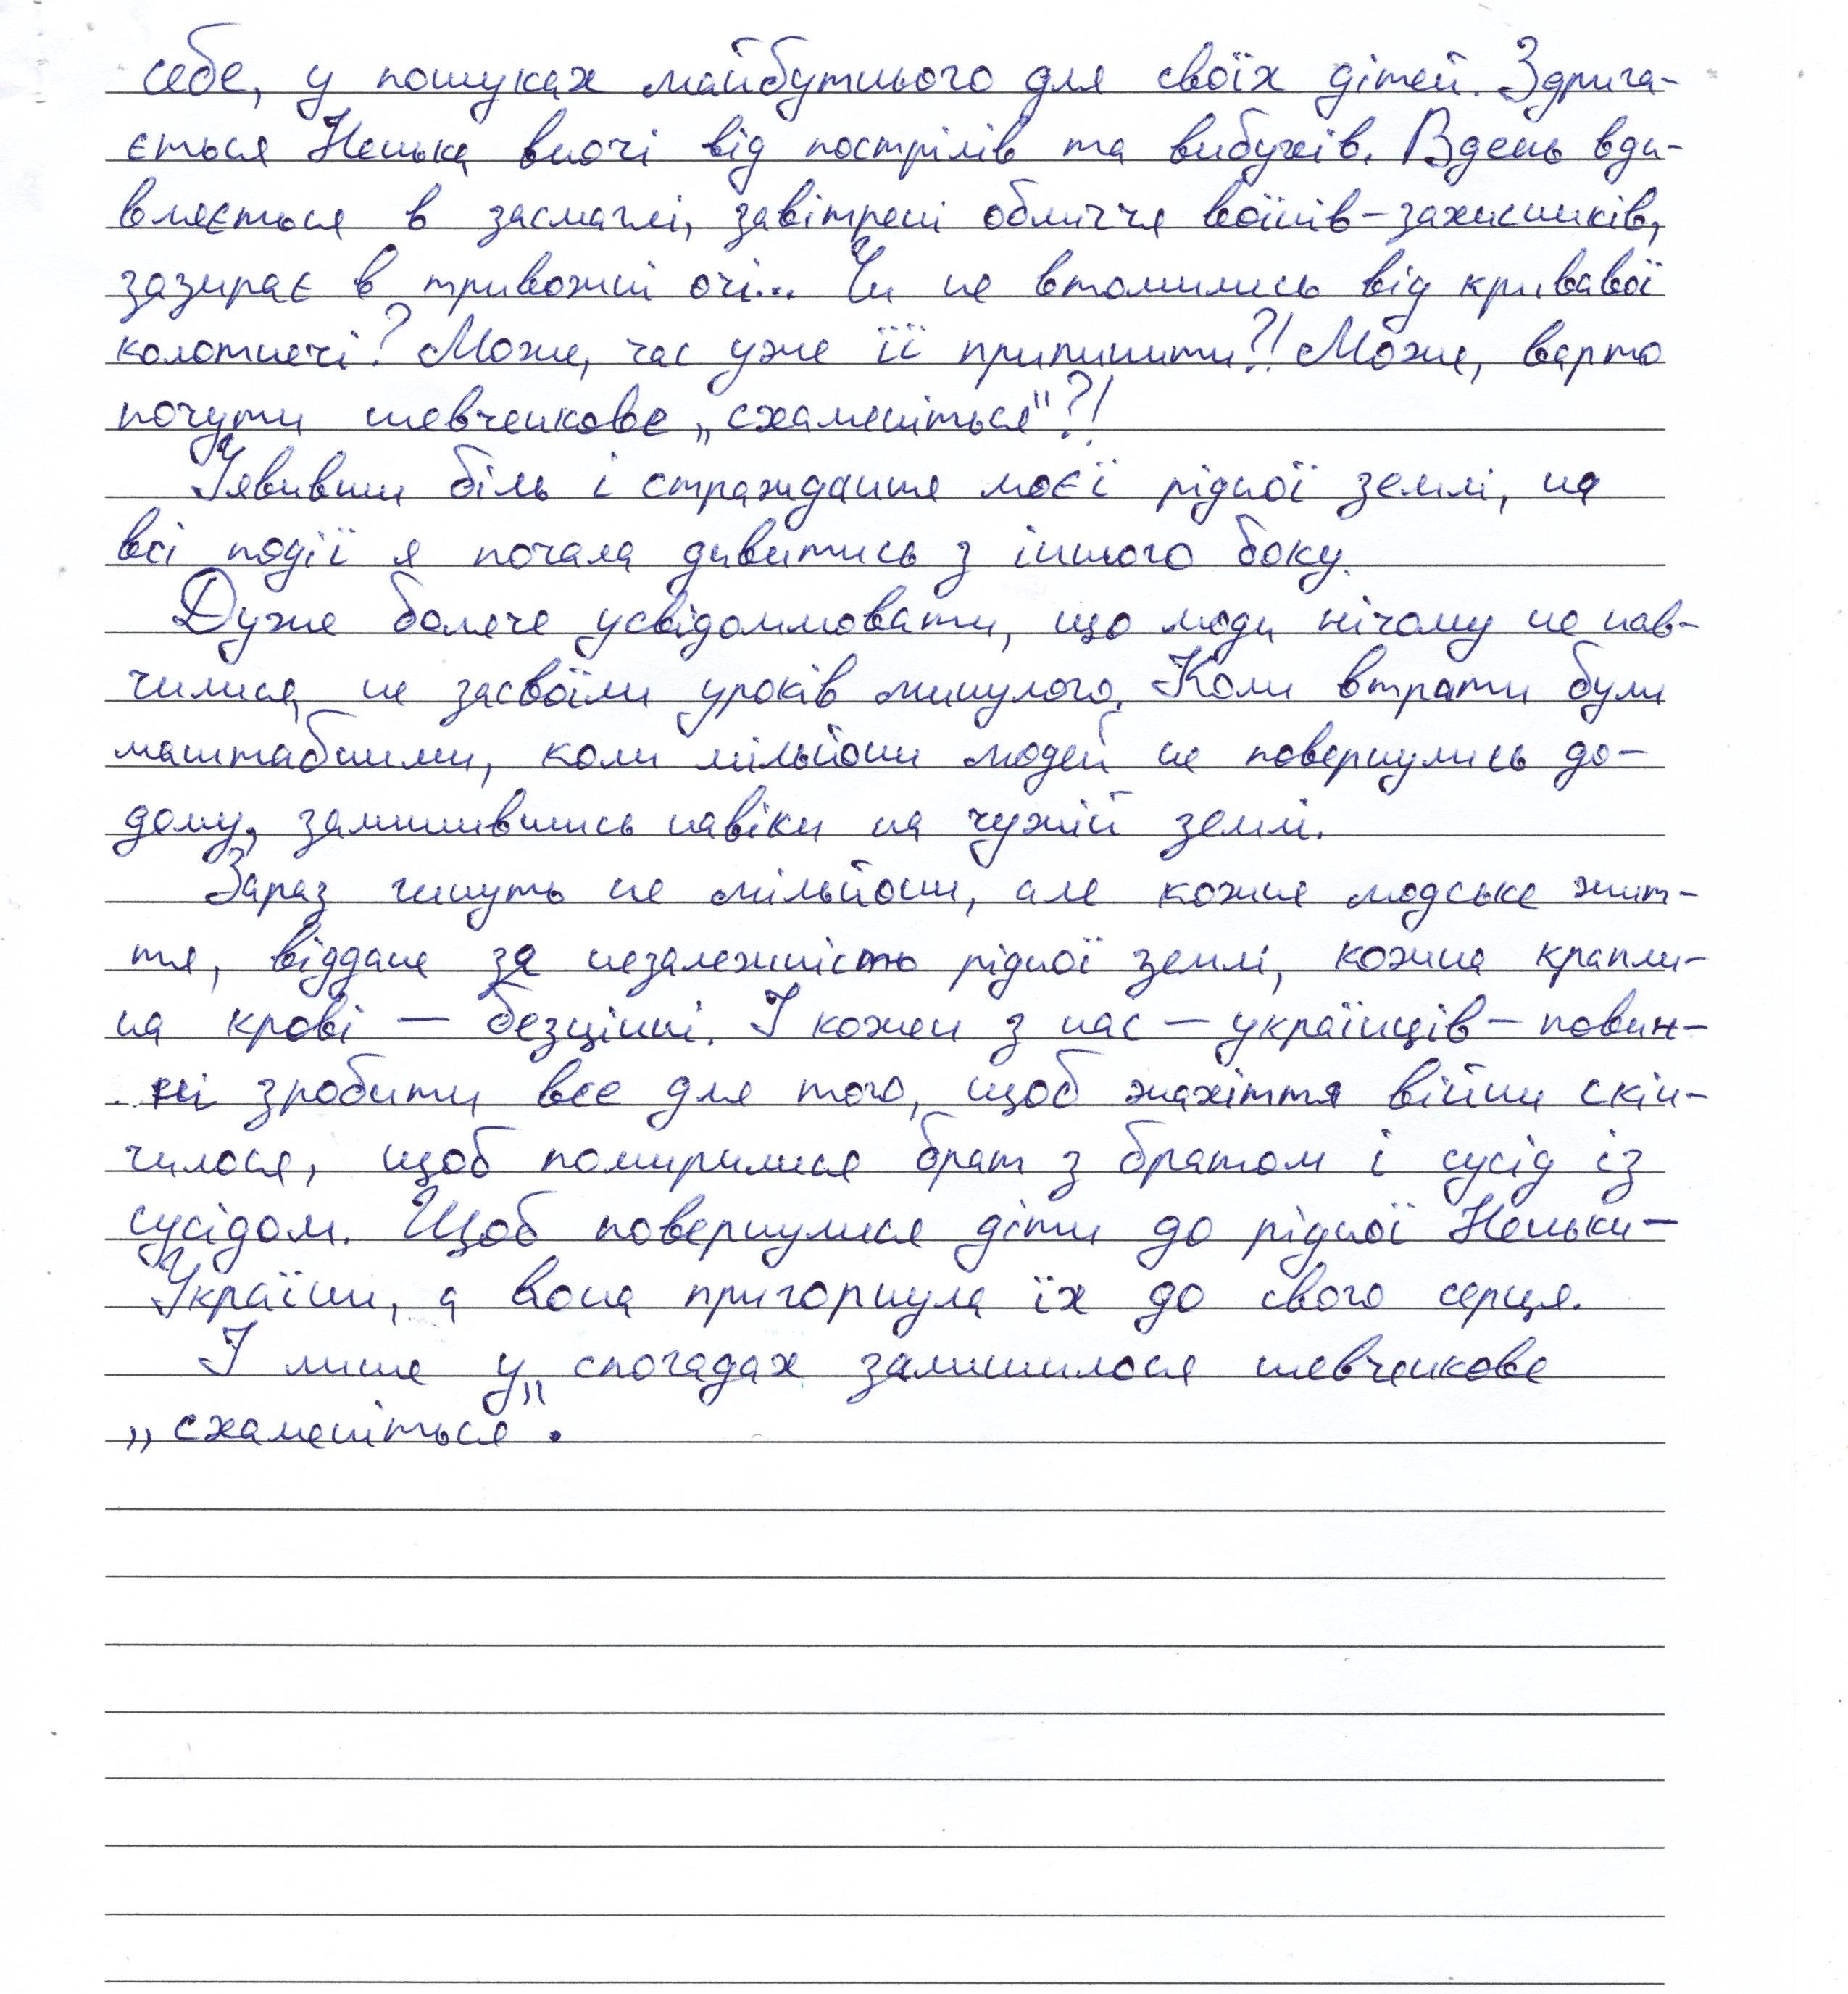 себе, у пошуках майбутнього для своїх дітей. Здрига-
ється Ненька вночі від пострілів та вибухів. Вдень вди-
вляється в засмаглі, завітрені обличчя воїнів-захисників,
зазирає в тривожні очі... Чи не втомились від кривавої
колотнечі? Може, час уже її припинити?! Може, варто
почути шевченкове „схаменіться"?!
Уявивши біль і страждання моєї рідної землі, на
всі події я почала дивитись з іншого боку.
Дуже боляче усвідомлювати, що люди нічому не нав-
чилися, не засвоїли уроків минулого. Коли втрати були
масштабними, коли мільйони людей не повернулись до-
дому, залишившись навіки на чужій землі.
Зараз гинуть не мільйони, але кожне людське жит-
тя, віддане за незалежність рідної землі, кожна крапли-
на крові — безцінні. І кожен з нас — українців — повин-
ні зробити все для того, щоб жахіття війни скін-
чилося, щоб помирилися брат з братом і сусід із
сусідом. Щоб повернулися діти до рідної Неньки-
України, а вона пригорнула їх до свого серця.
І лише у спогадах залишилося шевченкове
„схаменіться".